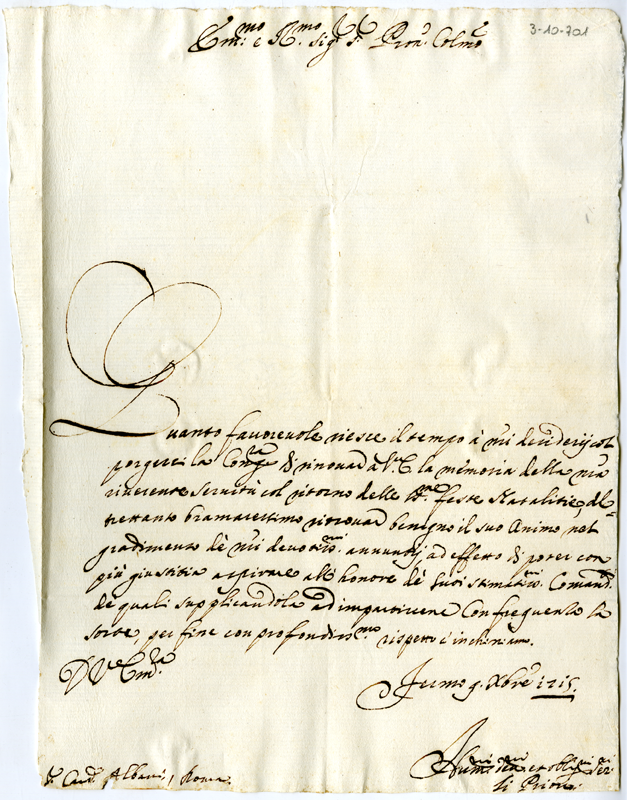 3-10-701
Em.mo e R.mo Sig.r S.r Pron. Colmo
Quanto favorevole riesce il tempo à n'ri desiderij col
porgerci la Cong.ra di rinovar à V.E. la memoria della n'ra
riverente servitù col ritorno delle SS.me feste Natalitie, al=
trettanto bramaressimo ritrovar benigno il suo Animo nel
gradimento de n'ri devotiss.mi annuntij ad effetto di poter con
più giustitia aspirare all'honore de' suoi stimatiss.mi Comandi
de quali supplicandola ad impartircene con frequenza la
sorte, per fine con profondiss.mo rispetto c'inchiniamo.
D. V.E. Em.za
Fermo 9. Xbre 1715.
Humi.mi Dev.mi et obblig.mi Ser.ri
li Priori
S. Card. Albani, Roma